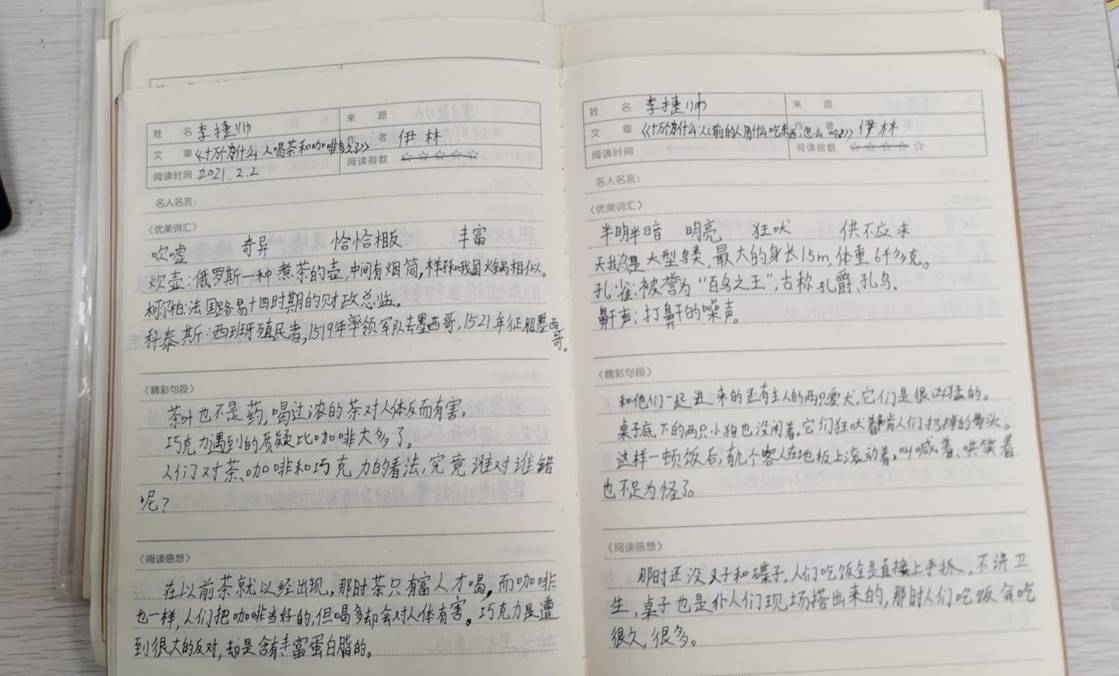 姓 名 李捷帅
来 源
文 章 《十万个为什么 人喝茶和咖啡多久了》
作 者 伊林
阅读时间 2021.2.2
阅读指数 ☆☆☆☆☆
名人名言:
〈优美词汇〉
吹嘘 奇异 恰恰相反 丰富
炊壶:俄罗斯一种煮茶的壶,中间有烟筒,样子和我国火锅相似。
柯尔柏:法国路易十四时期的财政总监。
科泰斯:西班牙殖民者,1519年率领军队去墨西哥,1521年征服墨西哥。
〈精彩句段〉
茶叶也不是药,喝过浓的茶对人体反而有害。
巧克力遇到的质疑比咖啡大多了。
人们对茶、咖啡和巧克力的看法,究竟谁对谁错
呢?
〈阅读感想〉
在以前茶就以经出现,那时茶只有富人才喝,而咖啡
也一样,人们把咖啡当好的,但喝多却会对人体有害。巧克力是遭
到很大的反对,却是含有丰富蛋白脂的。
姓 名 李捷帅
来 源
文 章 《十万个为什么 以前的人用什么吃东西,怎么吃》
作 者 伊林
阅读时间
阅读指数 ☆☆☆☆☆
名人名言:
〈优美词汇〉
半明半暗 明亮 狂吠 供不应求
天鹅:是大型鸟类,最大的身长1.5m,体重6千多克。
孔雀:被誉为“百鸟之王”,古称孔爵、孔鸟。
鼾声:打鼾的噪声。
〈精彩句段〉
和他们一起进来的还有主人的两只爱犬,它们是很凶猛的。
桌子底下的两只小狗也没闲着,它们狂吠着啃人们扔掉的骨头。
这样一顿饭后,有几个客人在地板上滚动着,叫喊着、哄笑着
也不足为怪了。
〈阅读感想〉
那时还没叉子和碟子,人们吃饭全是直接上手抓,不讲卫
生,桌子也是仆人们现场搭出来的,那时人们吃饭会吃
很久,很多。